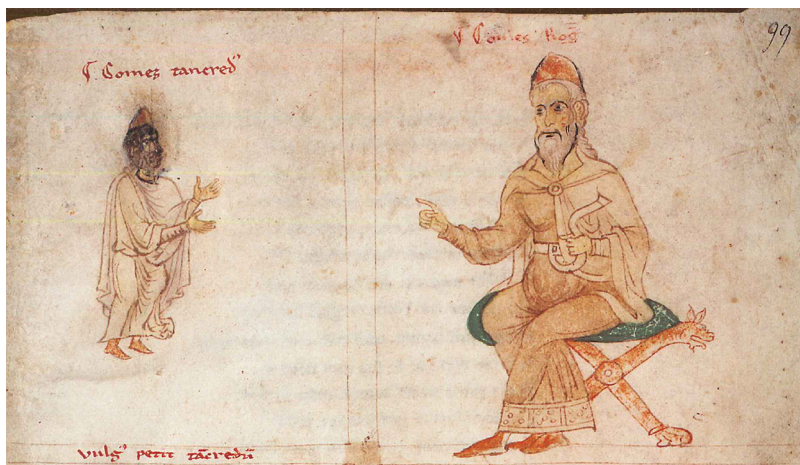 ¶ Comes tancred⁹
¶ Comes Rog̅
99
vulg⁹ petit ta̅credu̅